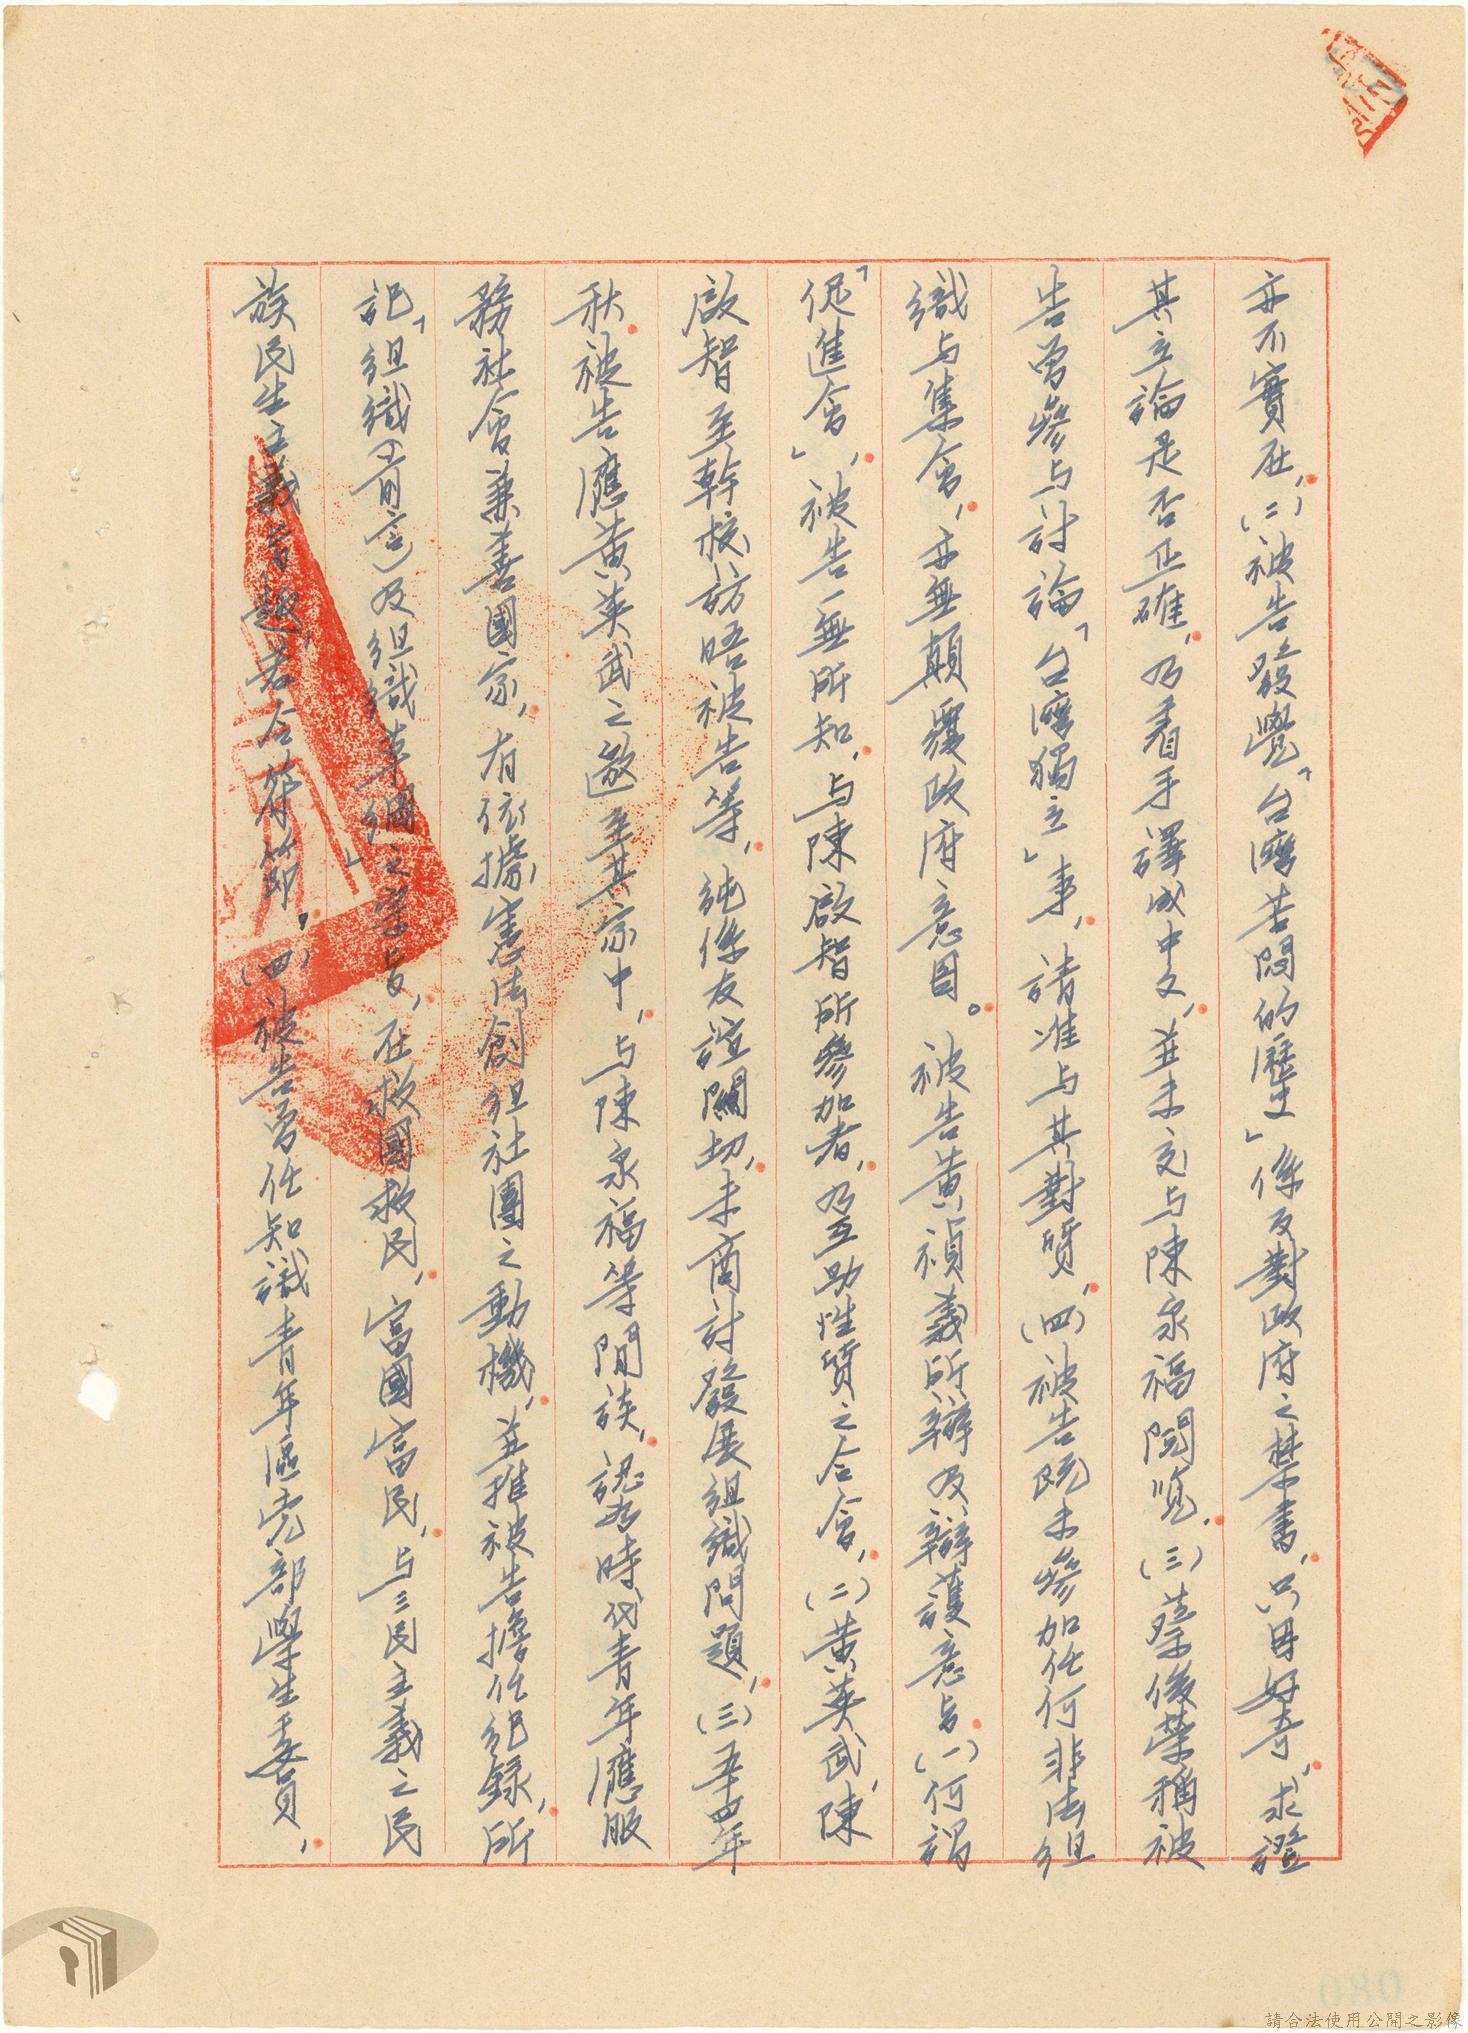 亦不實在，(二)被告發覺「台灣苦悶的歷史」係反對政府之禁書，只因好奇，求證
其立論是否正確，乃着手譯成中文，並未交与陳泉福閱覽，(三)蔡俊榮稱被
告曾參与討論「台灣獨立」事，請准与其對質，(四)被告既未參加任何非法組
織与集會，亦無顛覆政府意圖。被告黃禎義所辯及辯護意旨(一)何謂
「促進會」，被告一無所知，与陳啟智所參加者，乃互助性質之合會，(二)黃英武，陳
啟智至幹校訪晤被告等，純係友誼關切，未商討發展組織問題，(三)五十四年
秋，被告應黃英武之邀至其家中，与陳泉福等閒談，認為時代青年應服
務社會兼善國家，有依據憲法創組社團之動機，並推被告擔任紀錄，所
記「組織(前言)及組織草綱」之宗旨，在救國救民，富國富民，与三民主義之民
族民生主義旨趣，若合符節，(四)被告曾任知識青年區党部學生委員，
080
請合法使用公開之影像